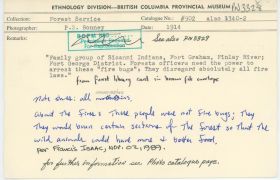 ETHNOLOGY DIVISION—BRITISH COLUMBIA PROVINCIAL MUSEUM PN 3328
Collection: Forest Service Catalogue # 902 also 3340-2
Photographer: F.S. Bonney Date: 1914
Remarks: See also PN 3329
"Family group of Sicanni Indians, Fort Graham, Finlay River;
Fort George District. Forests officers need the power to
arrest these "fire bugs". They disregard absolutely all fire
laws." from forest library card in brown file envelope
Note:
about the fires: These people were not fire bugs; They
would burn certain sections of the forest so that the
wild animals could have more & better food.
per Francis Isaac, Nov. 02, 1989.
for further information see Photo catalogue page.